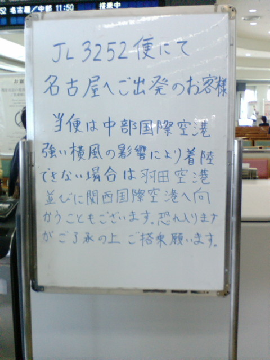 52 名古屋/中部 11:50 搭乗中
JL3252便にて
名古屋へご出発のお客様
当便は中部国際空港
強い横風の影響により着陸
できない場合は羽田空港
並びに関西国際空港へ向
かうこともございます。恐れ入ります
がご了承の上 ご搭乗願います。